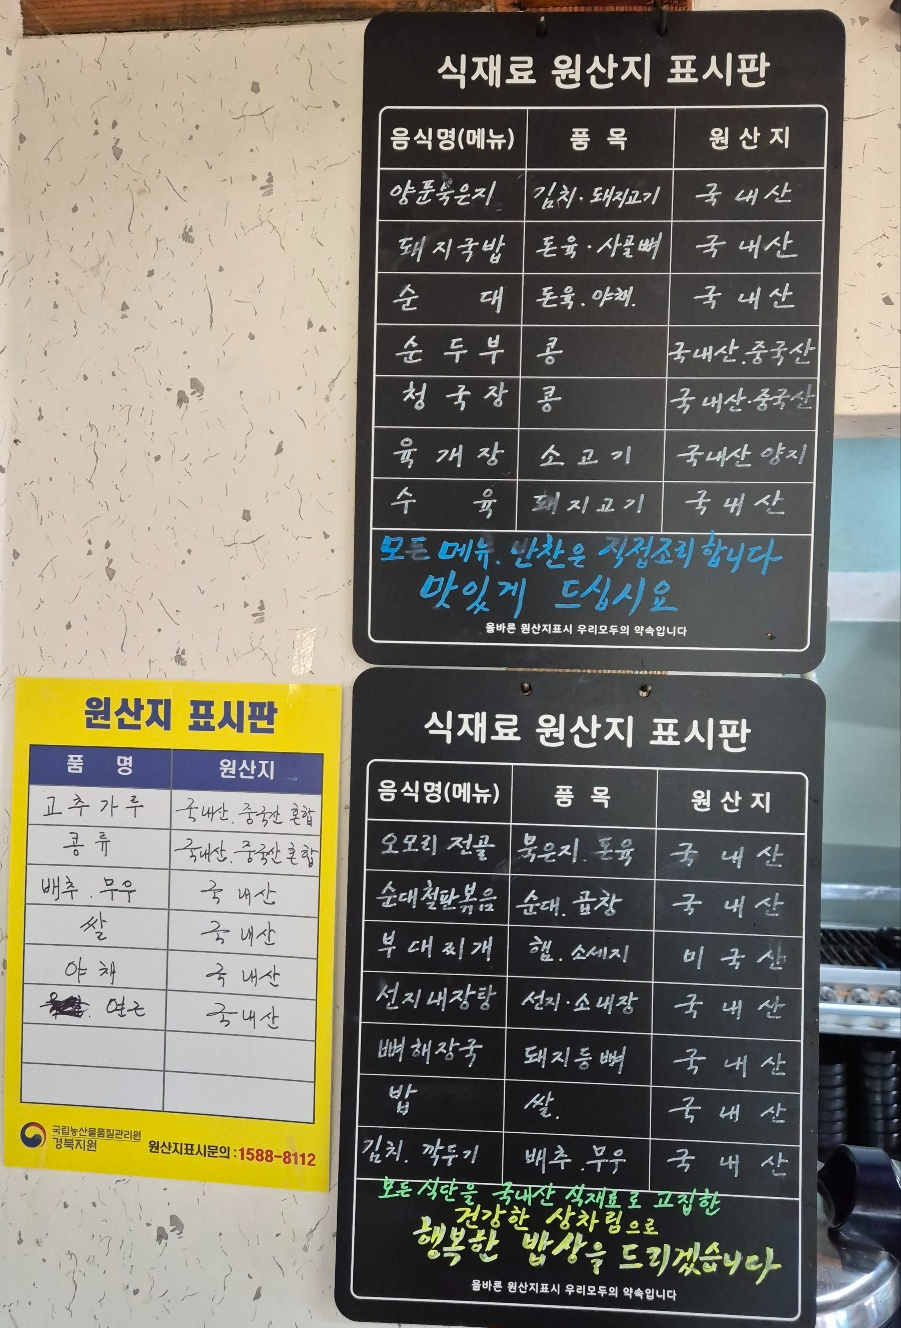 식재료 원산지 표시판
음식명(메뉴) 품 목 원 산 지
양푼묵은지 김치·돼지고기 국 내 산
돼지국밥 돈육·사골뼈 국 내 산
순 대 돈육.야채. 국 내 산
순 두 부 콩 국내산.중국산
청 국 장 콩 국내산·중국산
육 개 장 소 고 기 국내산 양지
수 육 돼지고기 국 내 산
모든 메뉴. 반찬은 직접조리합니다
맛있게 드십시요
올바른 원산지표시 우리모두의 약속입니다
원산지 표시판
품 명 원산지
고추가루 국내산.중국산 혼합
콩류 국내산.중국산 혼합
배추.무우 국 내산
쌀 국 내산
야채 국 내산
연근 국내산
국립농산물품질관리원
경북지원 원산지표시문의:1588-8112
식재료 원산지 표시판
음식명(메뉴) 품 목 원 산 지
오모리 전골 묵은지. 돈육 국 내 산
순대철판볶음 순대.곱창 국 내 산
부대찌개 햄.소세지 미 국 산
선지내장탕 선지·소내장 국 내 산
뼈해장국 돼지등뼈 국 내 산
밥 쌀. 국 내 산
김치. 깍두기 배추.무우 국 내 산
모든 식단을 국내산 식재료로 고집한
건강한 상차림으로
행복한 밥상을 드리겠습니다
올바른 원산지표시 우리모두의 약속입니다